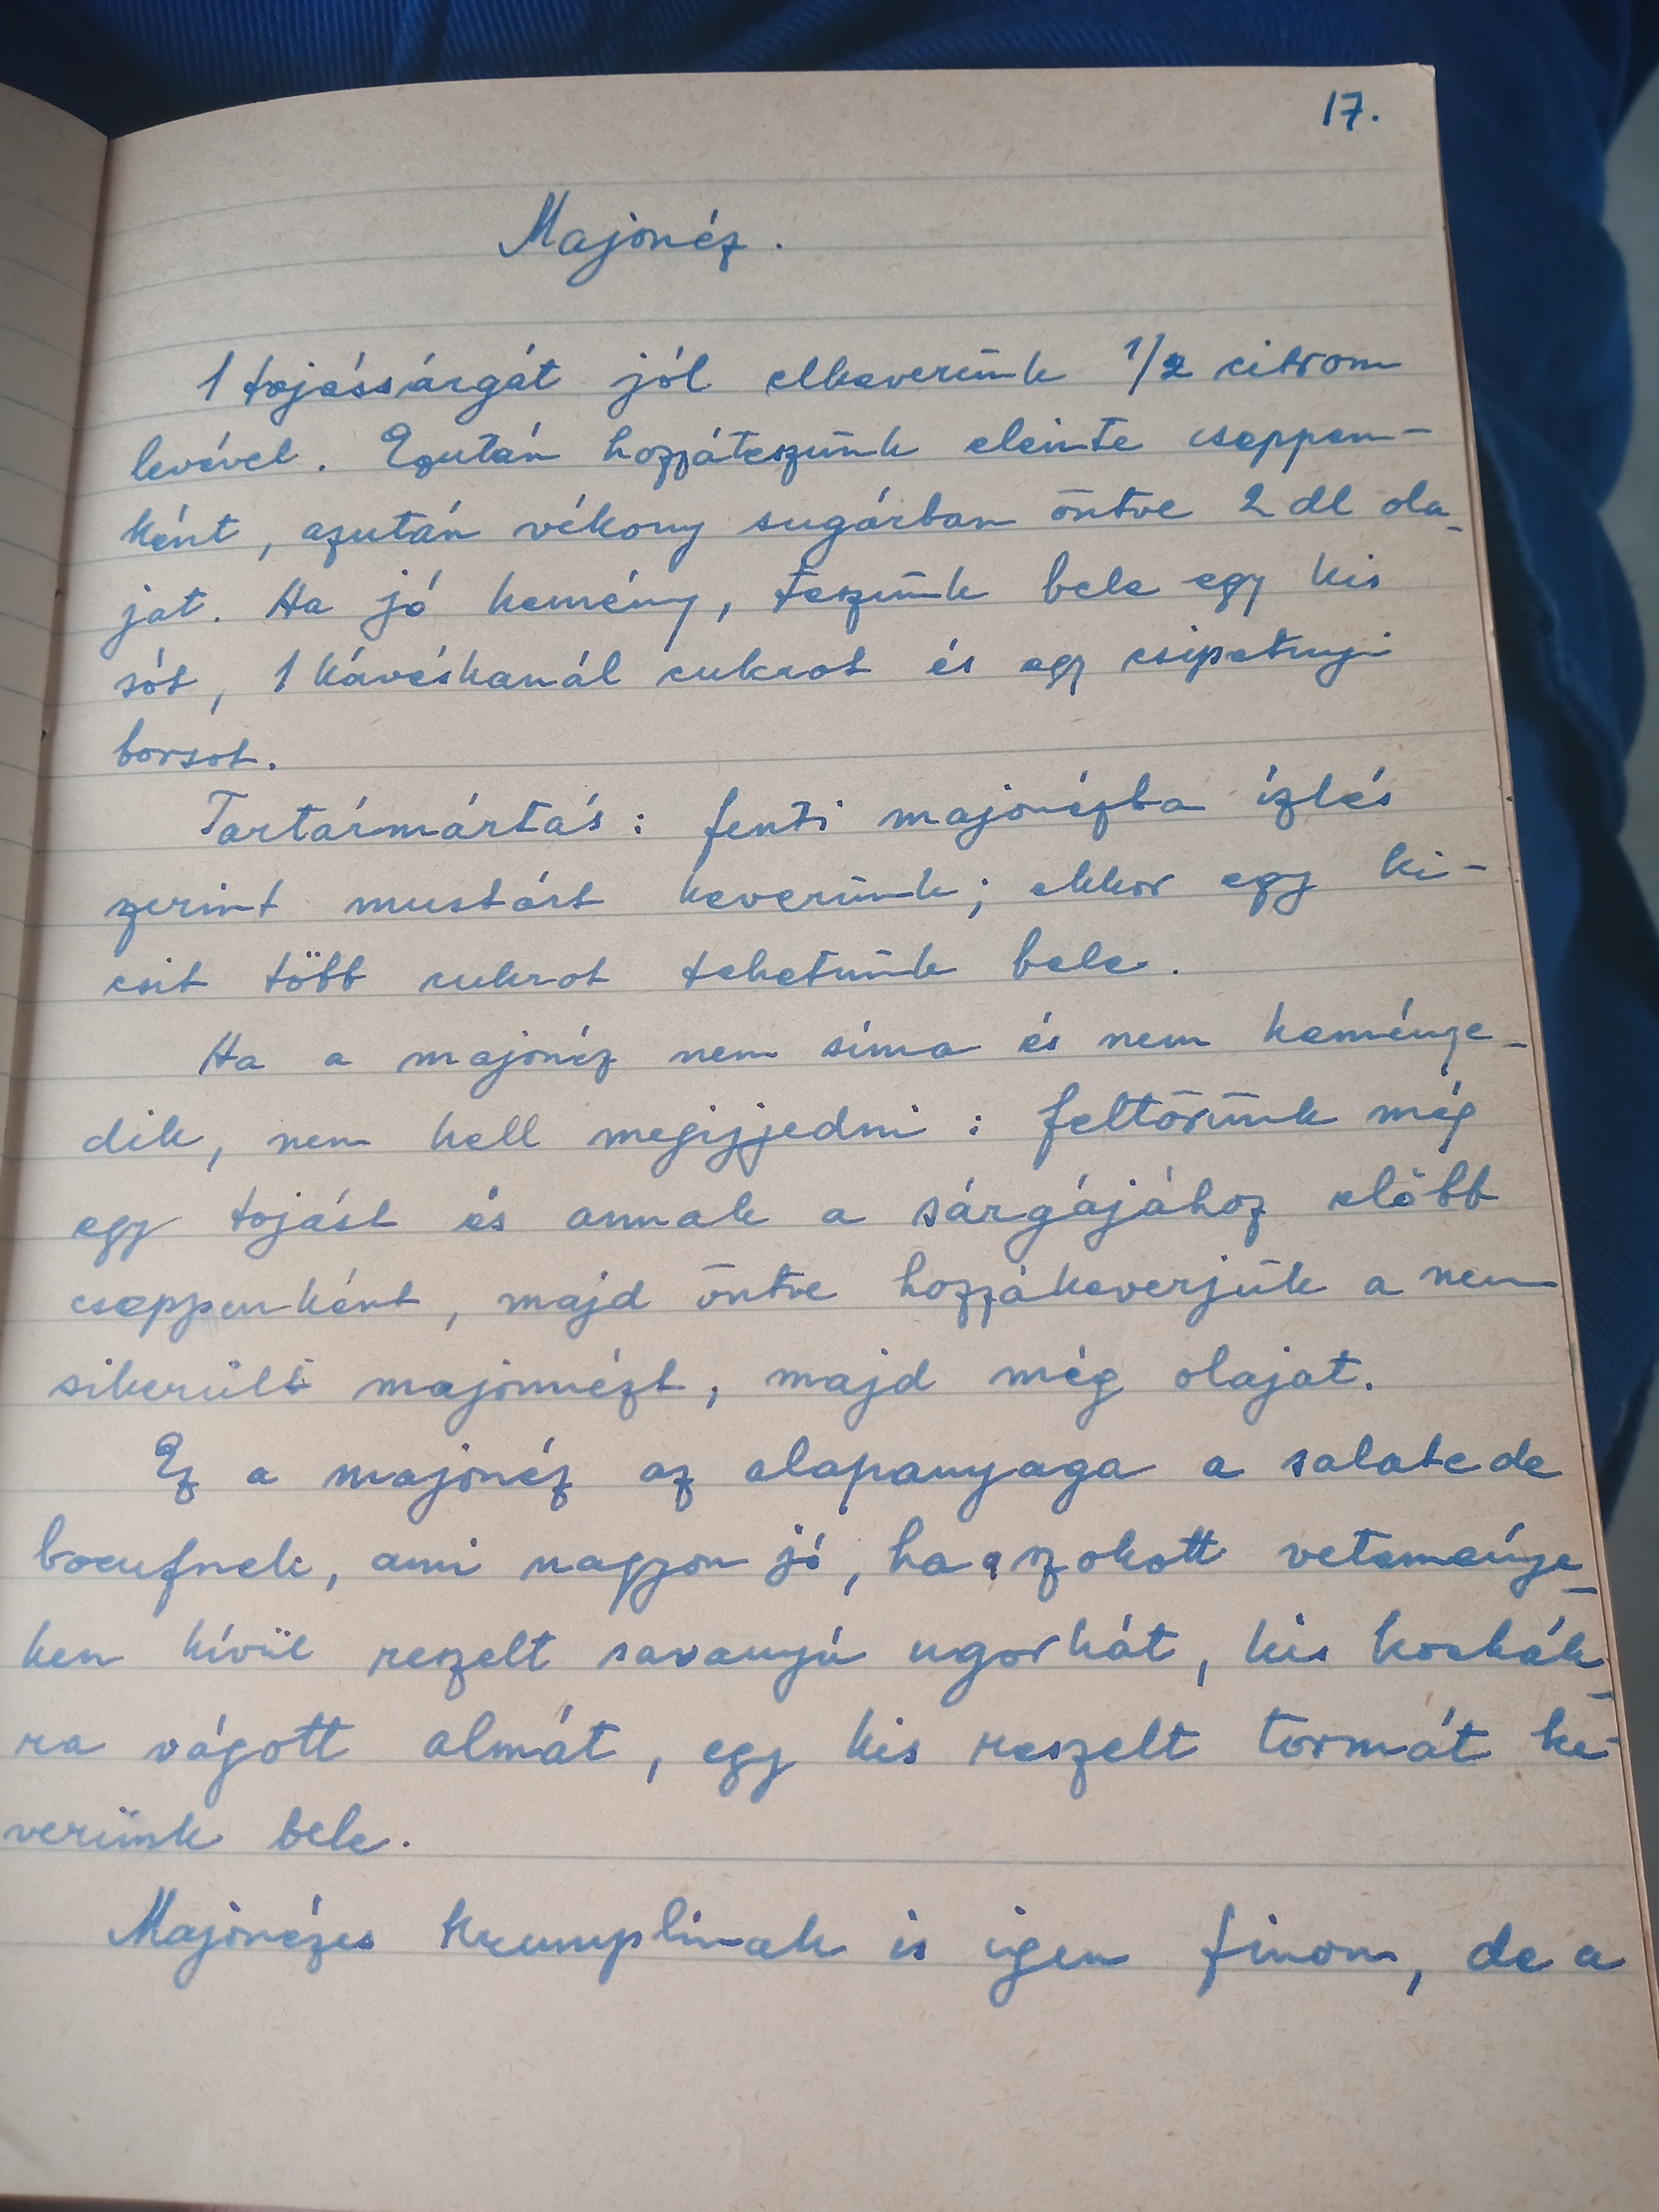 17.
Majonéz.
1 tojássárgát jól elkeverünk 1/2 citrom
levével. Ezután hozzáteszünk eleinte cseppen-
ként, azután vékony sugárban öntve 2 dl ola-
jat. Ha jó kemény, teszünk bele egy kis
sót, 1 kávéskanál cukrot és egy csipetnyi
borsot.
Tartármártás: fenti majonézba ízlés
szerint mustárt keverünk; ekkor egy ki-
csit több cukrot tehetünk bele.
Ha a majonéz nem síma és nem keménye-
dik, nem kell megijjedni: feltörünk még
egy tojást és annak a sárgájához előbb
cseppenként, majd öntve hozzákeverjük a nem
sikerült majonnézt, majd még olajat.
Ez a majonéz az alapanyaga a salatede
boeufnek, ami nagyon jó, ha a szokott vetemenye-
ken kívül reszelt savanyú ugorkát, kis kockák-
ra vágott almát, egy kis reszelt tormát ke-
verünk bele.
Majonézes krumplinak is igen finom, de a